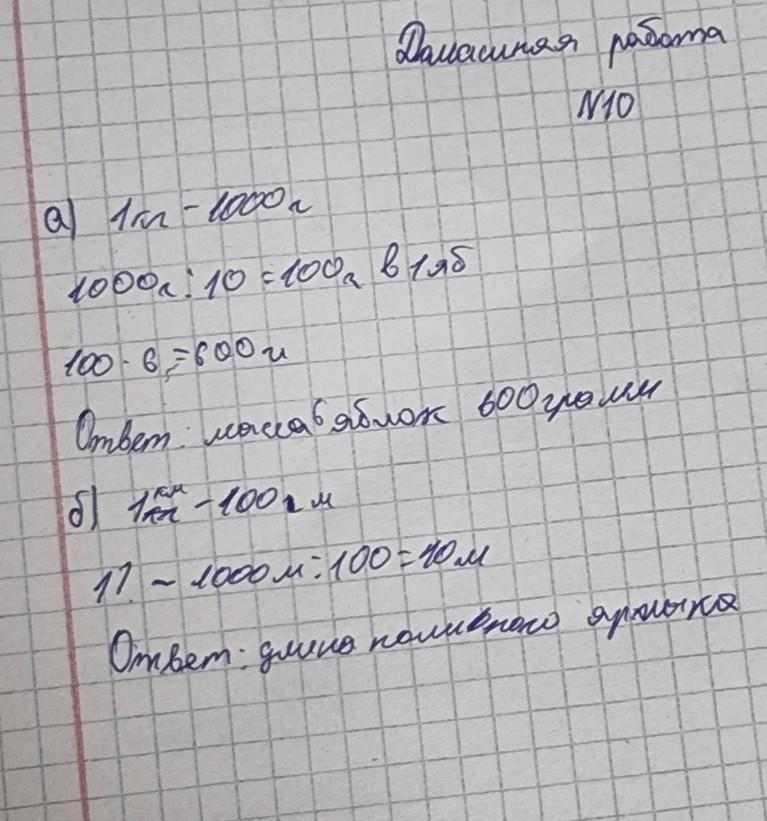 Домашняя работа
№10
а) 1кг - 1000г
1000г : 10 = 100г в 1яб
100 · 6 = 600г
Ответ: масса 6 яблок 600 грамм
б) 1км - 1000 м
1) - 1000м : 100 = 10м
Ответ: длина поливного